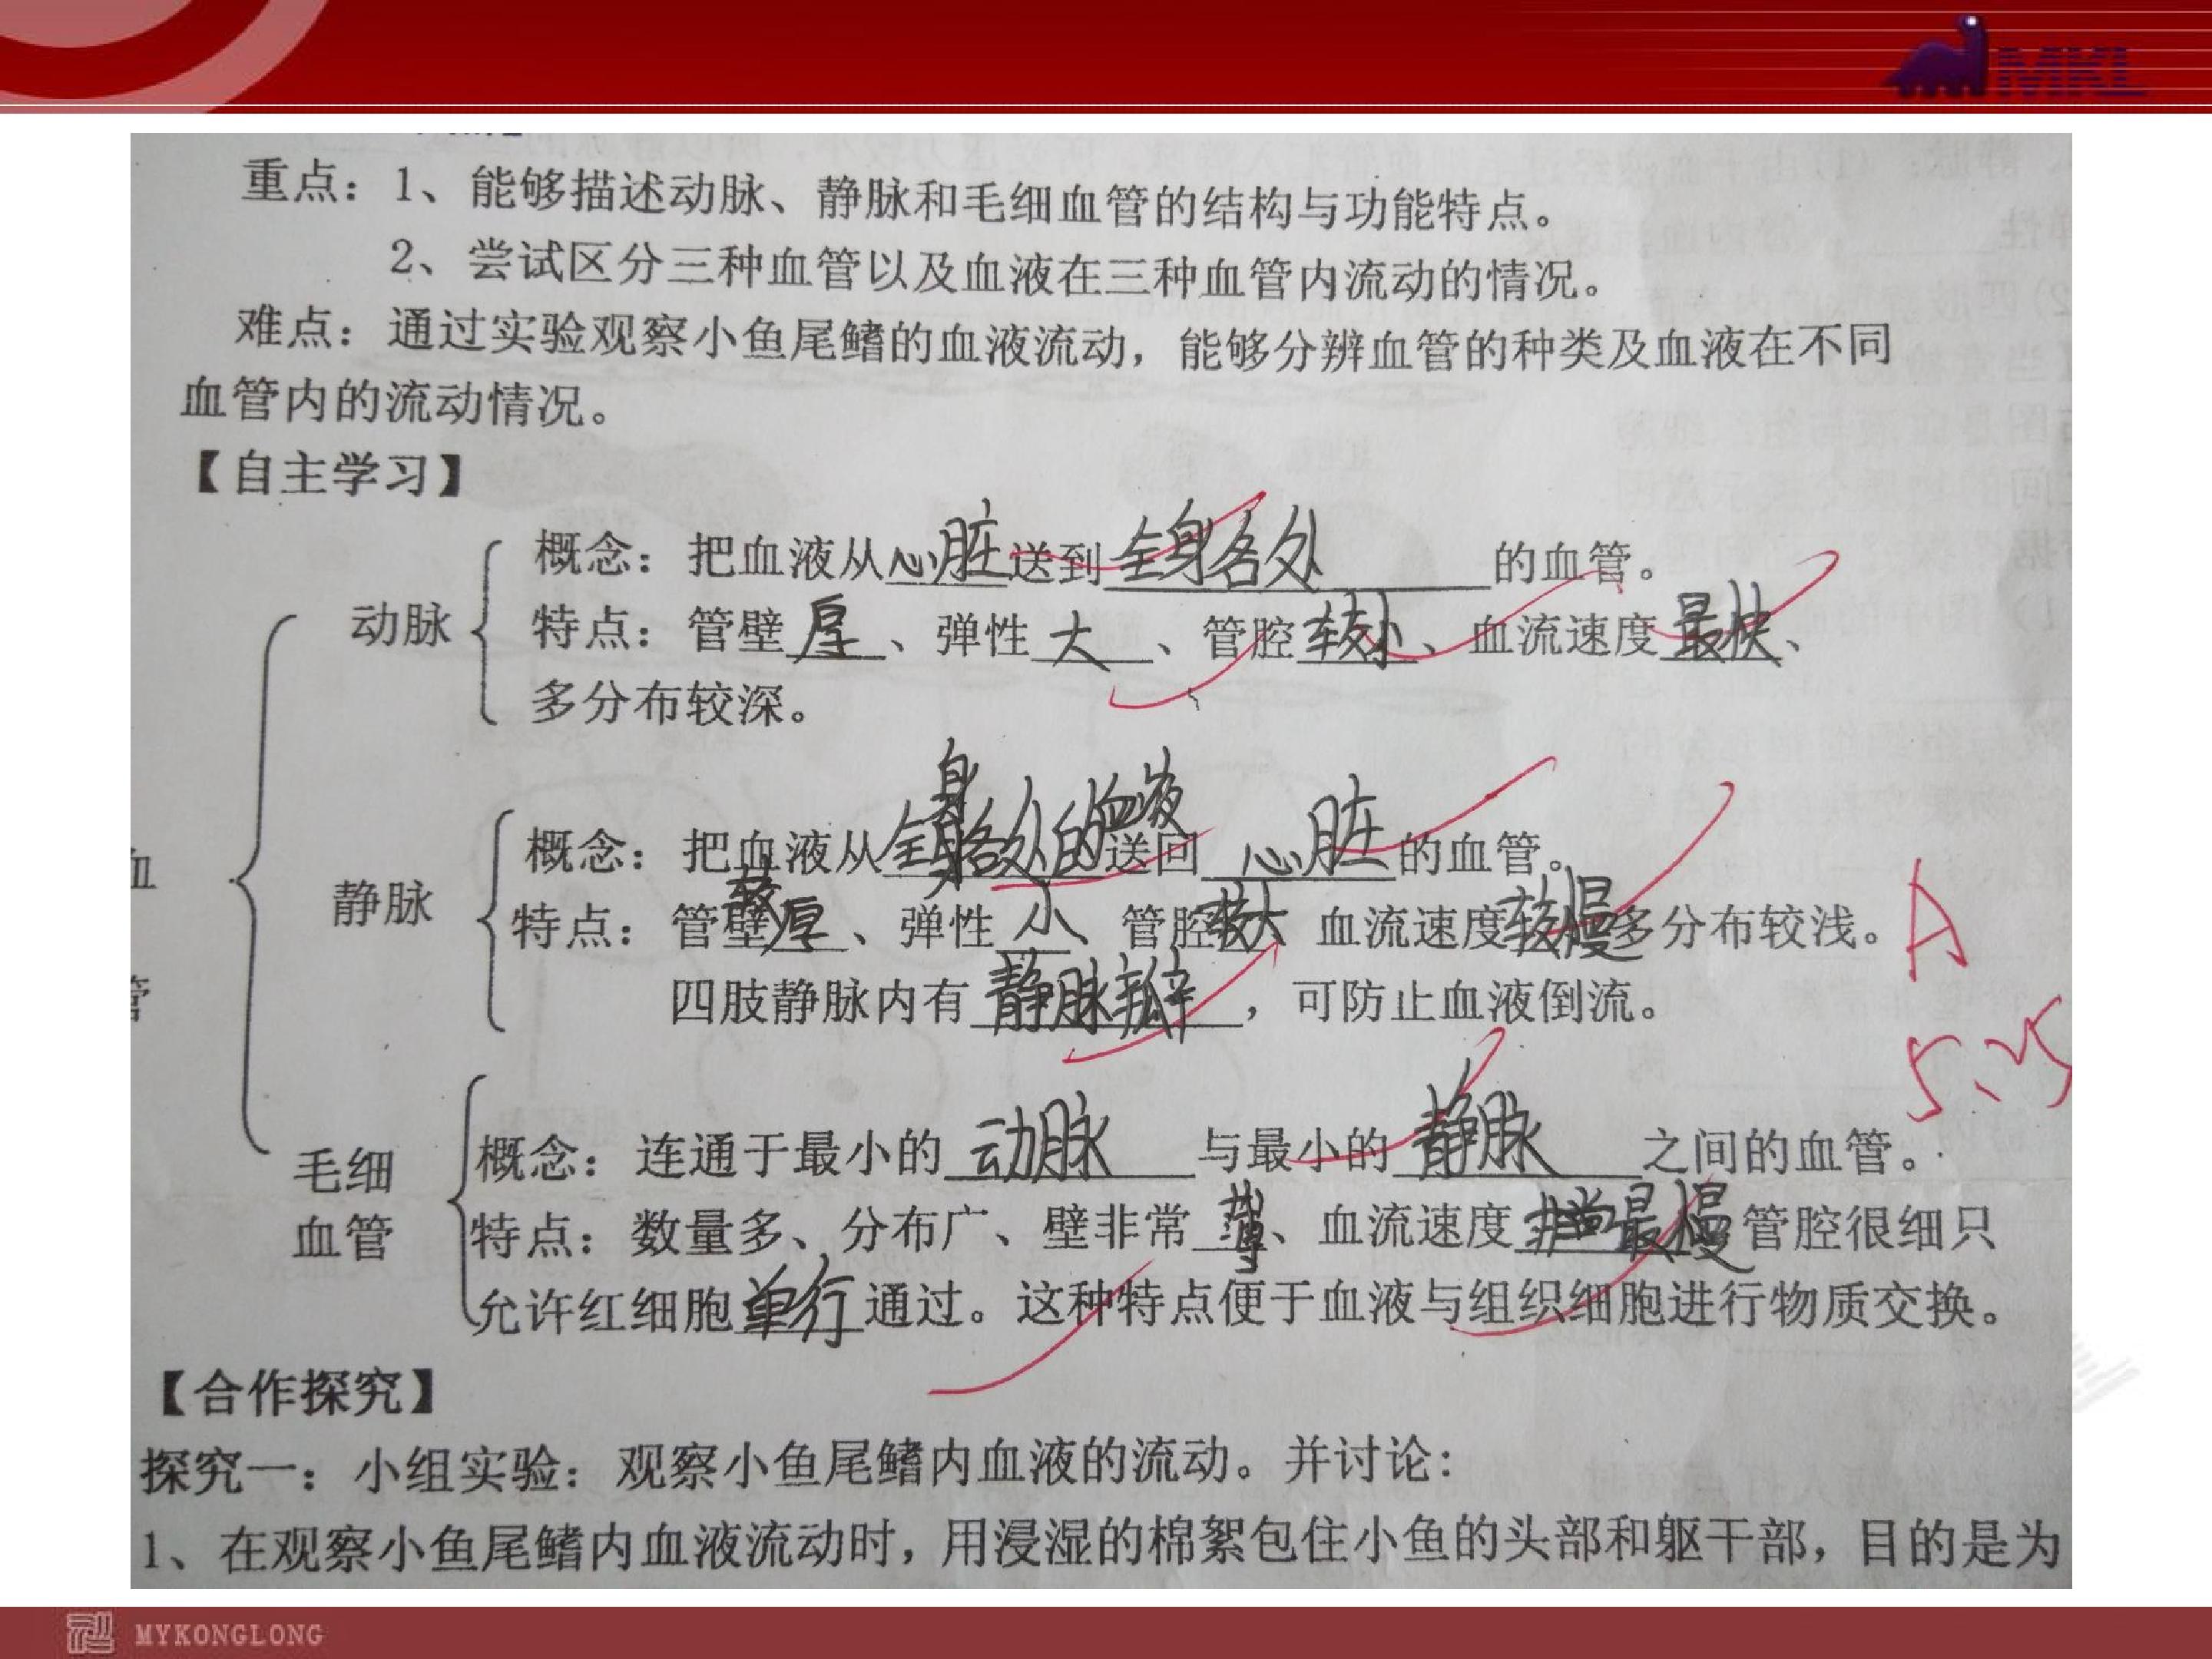 MKL
重点：1、能够描述动脉、静脉和毛细血管的结构与功能特点。
2、尝试区分三种血管以及血液在三种血管内流动的情况。
难点：通过实验观察小鱼尾鳍的血液流动，能够分辨血管的种类及血液在不同
血管内的流动情况。
【自主学习】
血
管
动脉
概念：把血液从心脏送到全身各处的血管。
特点：管壁厚、弹性大、管腔较小、血流速度最快、
多分布较深。
静脉
概念：把血液从全身各处的血液送回心脏的血管。
特点：管壁较厚、弹性小、管腔较大 血流速度较慢多分布较浅。
四肢静脉内有静脉瓣，可防止血液倒流。
A
5.25
毛细
血管
概念：连通于最小的动脉与最小的静脉之间的血管。
特点：数量多、分布广、壁非常薄、血流速度非常最慢管腔很细只
允许红细胞单行通过。这种特点便于血液与组织细胞进行物质交换。
【合作探究】
探究一：小组实验：观察小鱼尾鳍内血液的流动。并讨论：
1、在观察小鱼尾鳍内血液流动时，用浸湿的棉絮包住小鱼的头部和躯干部，目的是为
MYKONGLONG